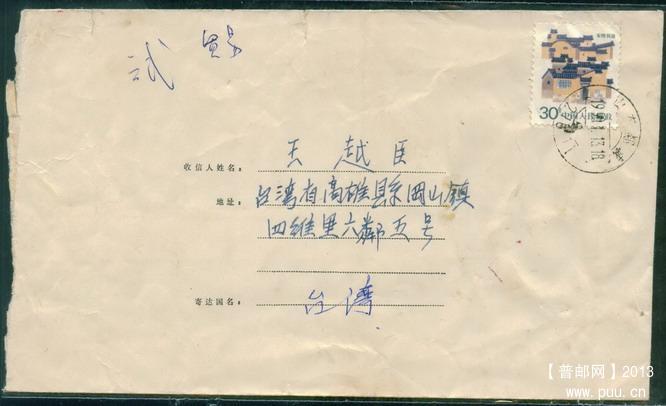 试 贸易
安徽民居
30 中国人民邮政
收信人姓名: 王越臣
地址: 台湾省高雄縣冈山镇
四维里六鄰五号
寄达国名: 台湾
【普邮网】2013
www.puu.cn